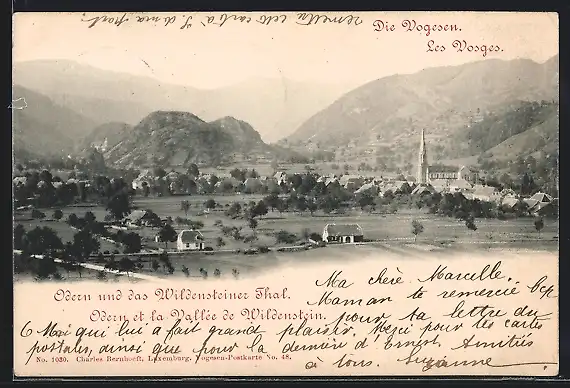 Die Vogesen.
Les Vosges.
Odern und das Wildensteiner Thal.
Odern et la Vallée de Wildenstein.
Ma chère Marcelle.
Maman te remercie bcp
pour ta lettre du
6 Moi qui lui a fait grand plaisir. Merci pour les cartes
postales, ainsi que pour la dernière d'Ernest. Amitiés
à tous. Suzanne
No. 1030. Charles Bernhoeft, Luxemburg. Vogesen-Postkarte No. 48.